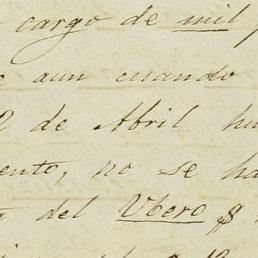 cargo de mil
aun cuando
2 de Abril hu
ento, no se ha
del Vbero $